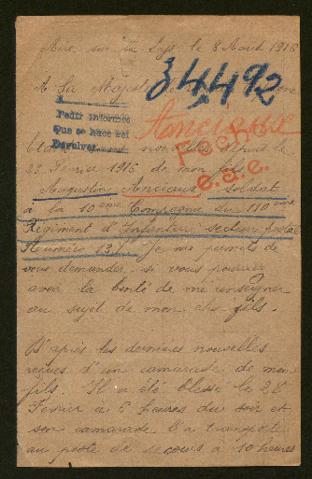 Aire sur la Lys, le 8 Août 1916
34492
A Sa Majesté
Pedir informes
Que se hace sei
Devolver
Anciaux
Fecho
nouvelles depuis le
28 Février 1916 de mon fils
Augustin Anciaux, soldat
à la 10ème Compagnie du 110ème
Régiment d'Infanterie secteur postal
Numéro 131. Je me permets de
vous demander si vous pouviez
avoir la bonté de m'enseigner
au sujet de mon cher fils.
D'après les dernières nouvelles
reçues d'un camarade de mon
fils. Il a été blessé le 28
Février à 6 heures du soir et
son camarade l'a transporté
au poste de secours à 10 heures